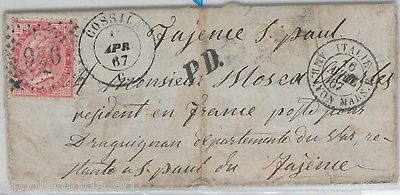 COSSILA
APR
67
P.D.
ITALIE
6
67
Fajence S. paul
A Monsieur Mosca
résident en France poste pour
Draguignan département du Var, res-
tante a S. paul du Fajence